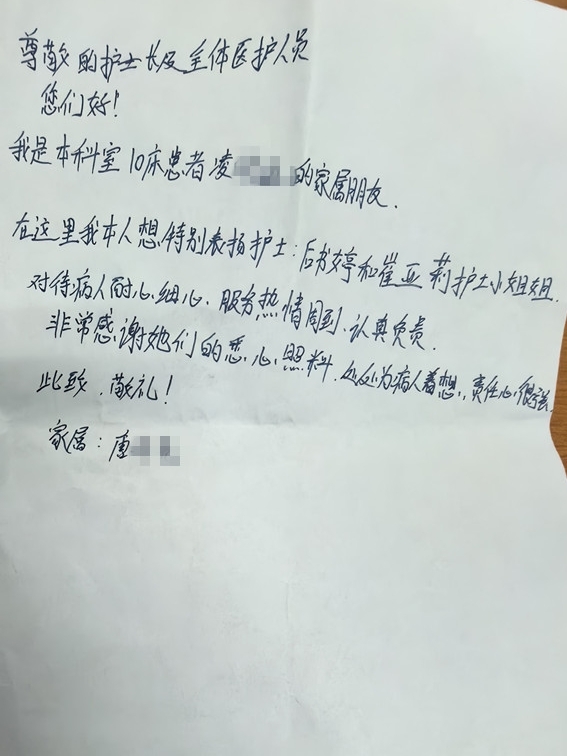 尊敬的护士长及全体医护人员
您们好！
我是本科室10床患者凌的家属朋友.
在这里我本人想特别表扬护士：后书婷和崔亚莉护士小姐姐.
对待病人耐心细心、服务热情周到、认真负责.
非常感谢她们的悉心照料.处处为病人着想,责任心很强.
此致.敬礼！
家属：唐